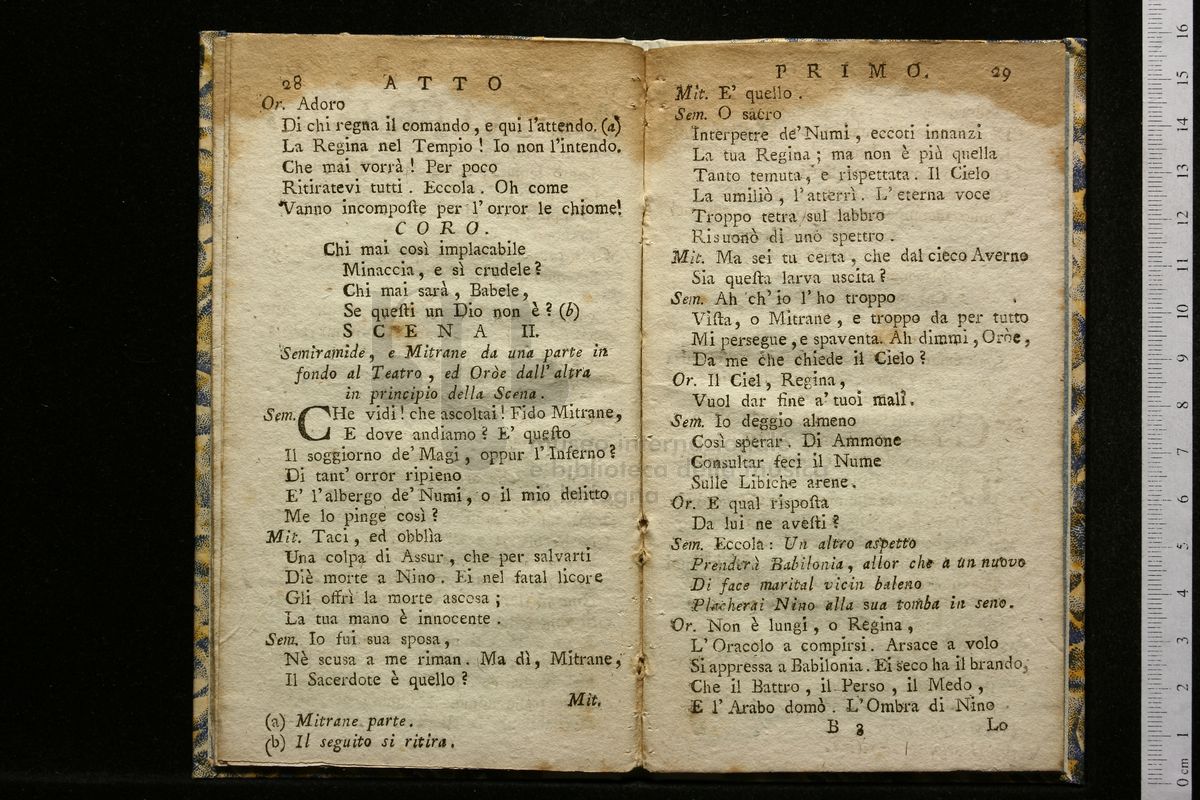 28 ATTO
Or. Adoro
Di chi regna il comando, e qui l'attendo. (a)
La Regina nel Tempio! Io non l'intendo.
Che mai vorrà! Per poco
Ritiratevi tutti. Eccola. Oh come
Vanno incomposte per l'orror le chiome!
CORO.
Chi mai così implacabile
Minaccia, e sì crudele?
Chi mai sarà, Babele,
Se questi un Dio non è? (b)
SCENA II.
Semiramide, e Mitrane da una parte in
fondo al Teatro, ed Oròe dall'altra
in principio della Scena.
Sem. CHe vidi! che ascoltai! Fido Mitrane,
E dove andiamo? E' questo
Il soggiorno de' Magi, oppur l'Inferno?
Di tant' orror ripieno
E' l'albergo de' Numi, o il mio delitto
Me lo pinge così?
Mit. Taci, ed obblìa
Una colpa di Assur, che per salvarti
Diè morte a Nino. Ei nel fatal licore
Gli offrì la morte ascosa;
La tua mano è innocente.
Sem. Io fui sua sposa,
Nè scusa a me riman. Ma dì, Mitrane,
Il Sacerdote è quello?
Mit.
(a) Mitrane parte.
(b) Il seguito si ritira.
PRIMO. 29
Mit. E' quello.
Sem. O sacro
Interpetre de' Numi, eccoti innanzi
La tua Regina; ma non è più quella
Tanto temuta, e rispettata. Il Cielo
La umiliò, l'atterrì. L'eterna voce
Troppo tetra sul labbro
Risuonò di uno spettro.
Mit. Ma sei tu certa, che dal cieco Averno
Sia questa larva uscita?
Sem. Ah ch'io l'ho troppo
Vista, o Mitrane, e troppo da per tutto
Mi persegue, e spaventa. Ah dimmi, Oròe,
Da me che chiede il Cielo?
Or. Il Ciel, Regina,
Vuol dar fine a' tuoi mali.
Sem. Io deggio almeno
Così sperar. Di Ammone
Consultar feci il Nume
Sulle Libiche arene.
Or. E qual risposta
Da lui ne avesti?
Sem. Eccola: Un altro aspetto
Prenderà Babilonia, allor che a un nuovo
Di face marital vicin baleno
Placherai Nino alla sua tomba in seno.
Or. Non è lungi, o Regina,
L'Oracolo a compirsi. Arsace a volo
Si appressa a Babilonia. Ei seco ha il brando,
Che il Battro, il Perso, il Medo,
E l'Arabo domò. L'Ombra di Nino
B 3 Lo
0 cm 1 2 3 4 5 6 7 8 9 10 11 12 13 14 15 16